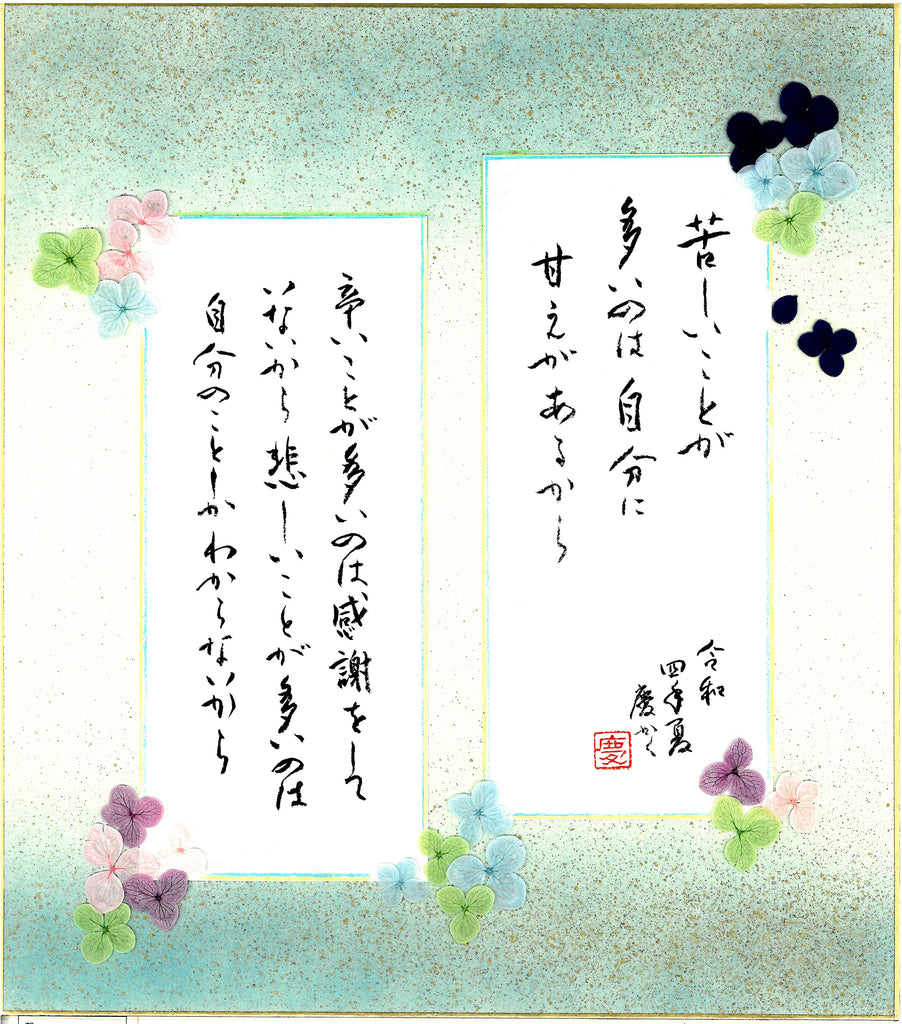 苦しいことが
多いのは自分に
甘えがあるから
令和
四年夏
慶かく
慶
辛いことが多いのは、感謝をして
いないから悲しいことが多いのは
自分のことしかわからないから